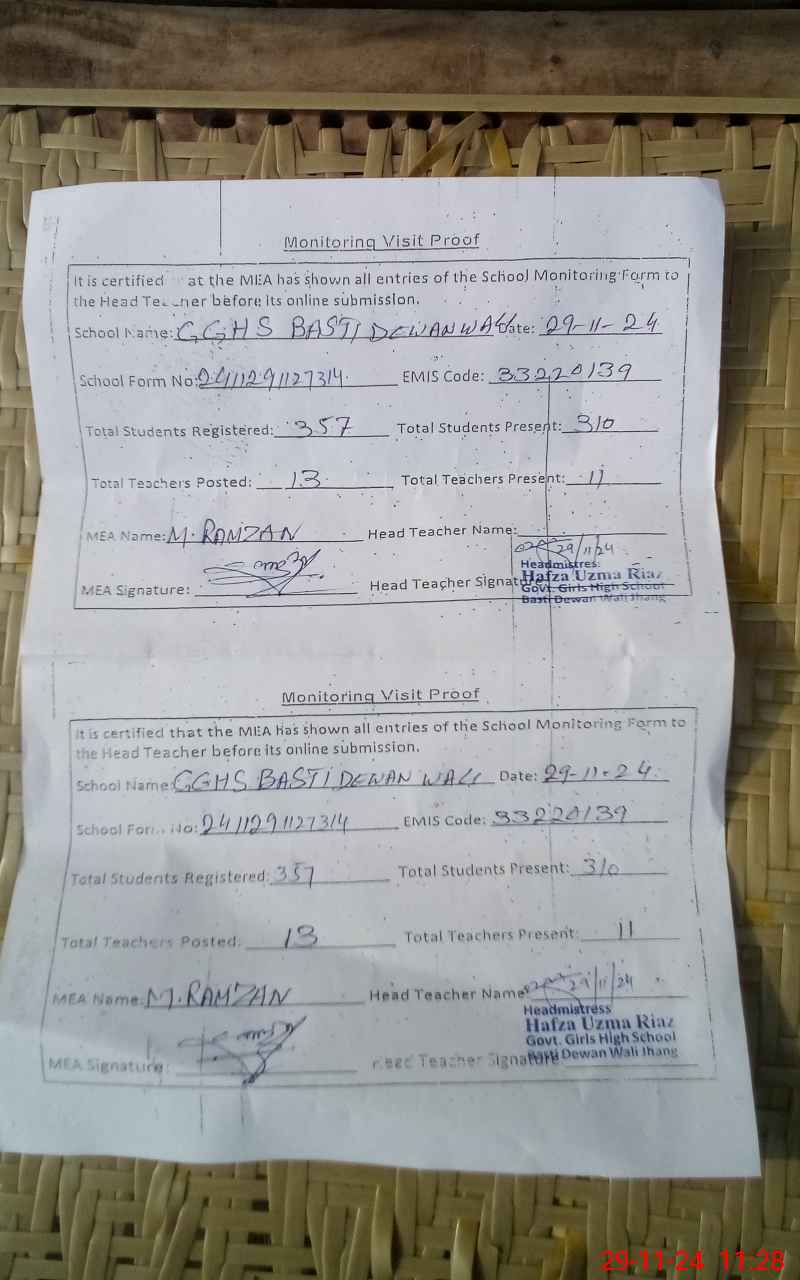 Monitoring Visit Proof
It is certified at the MEA has shown all entries of the School Monitoring Form to
the Head Teacher before its online submission.
School Name: GGHS BASTI DEWAN WALI Date: 29-11-24
School Form No: 2411291127314 EMIS Code: 33220139
Total Students Registered: 357 Total Students Present: 310
Total Teachers Posted: 13 Total Teachers Present: 11
MEA Name: M. RAMZAN Head Teacher Name:
29/11/24
Headmistress
Hafza Uzma Riaz
MEA Signature: Head Teacher Signature
Govt. Girls High School
Basti Dewan Wali Jhang
Monitoring Visit Proof
It is certified that the MEA has shown all entries of the School Monitoring Form to
the Head Teacher before its online submission.
School Name GGHS BASTI DEWAN WALI Date: 29-11-24
School Form No: 2411291127314 EMIS Code: 33220139
Total Students Registered: 357 Total Students Present: 310
Total Teachers Posted: 13 Total Teachers Present: 11
MEA Name: M. RAMZAN Head Teacher Name 29/11/24
Headmistress
Hafza Uzma Riaz
Govt. Girls High School
Basti Dewan Wali Jhang
MEA Signature: Head Teacher Signature
29-11-24 11:28